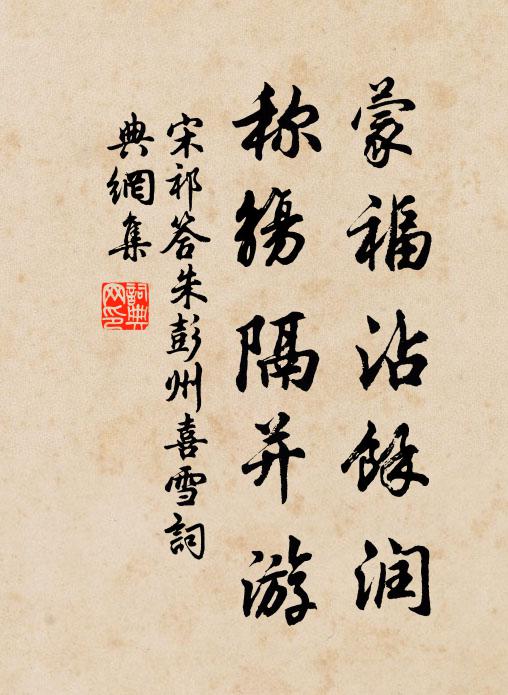 蒙福沾餘润
称觴隔并游
宋祁答朱彭州喜雪詞
典網集
詞典网印